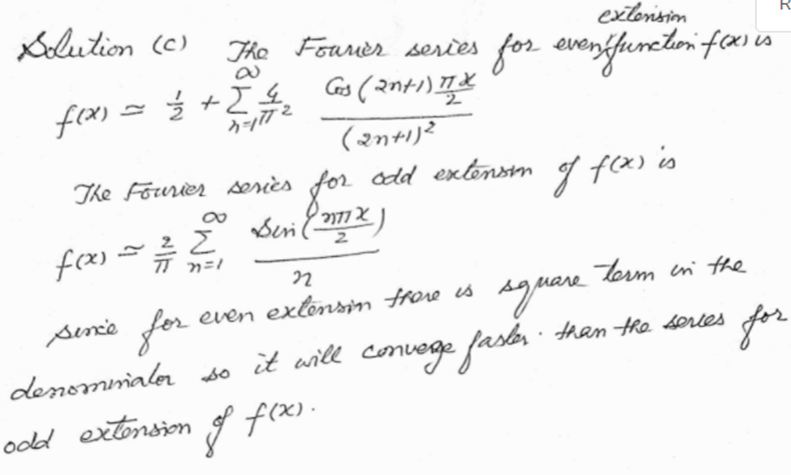 extension
R
Solution (c) The Fourier series for even function f(x) is
f(x) ≃ 1/2 + ∑_{n=1}^{∞} 4/π² Cos(2n+1)πx/2 / (2n+1)²
The Fourier series for odd extension of f(x) is
f(x) ≃ 2/π ∑_{n=1}^{∞} Sin(nπx/2) / n
since for even extension there is square term in the
denominator so it will converge faster. than the series for
odd extension of f(x).